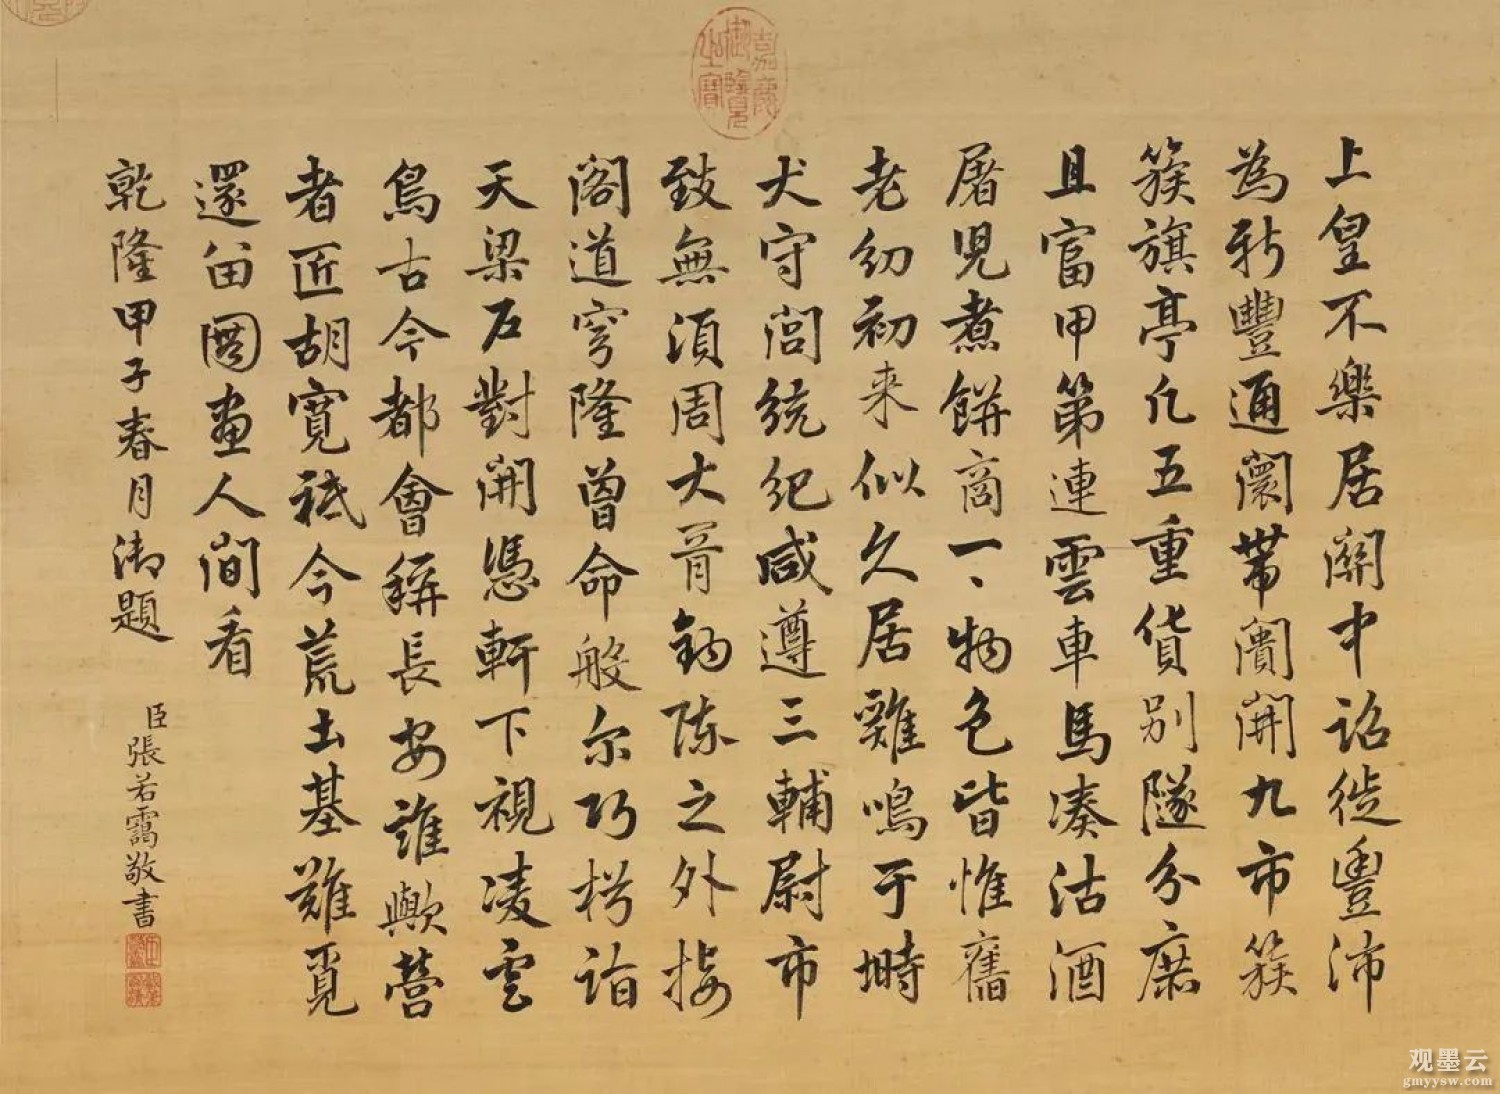 上皇不樂居關中詔徙豐沛
為新豐通闤帶闠開九市簇
簇旗亭凡五重貨別隧分廛
且富甲第連雲車馬湊沽酒
屠兒煮餅商一、物色皆惟舊
老幼初来似久居雞鳴于塒
犬守閭統紀咸遵三輔尉市
致無須周大胥鈎陳之外接
閣道穹隆曾命般尔巧枍詣
天梁石對開憑軒下視凌雲
鳥古今都會稱長安誰歟營
者匠胡寬祗今荒土基難覓
還留圖畫人間看
乾隆甲子春月御題
臣張若靄敬書
嘉慶御覽之寶
观墨云
gmyysw.com